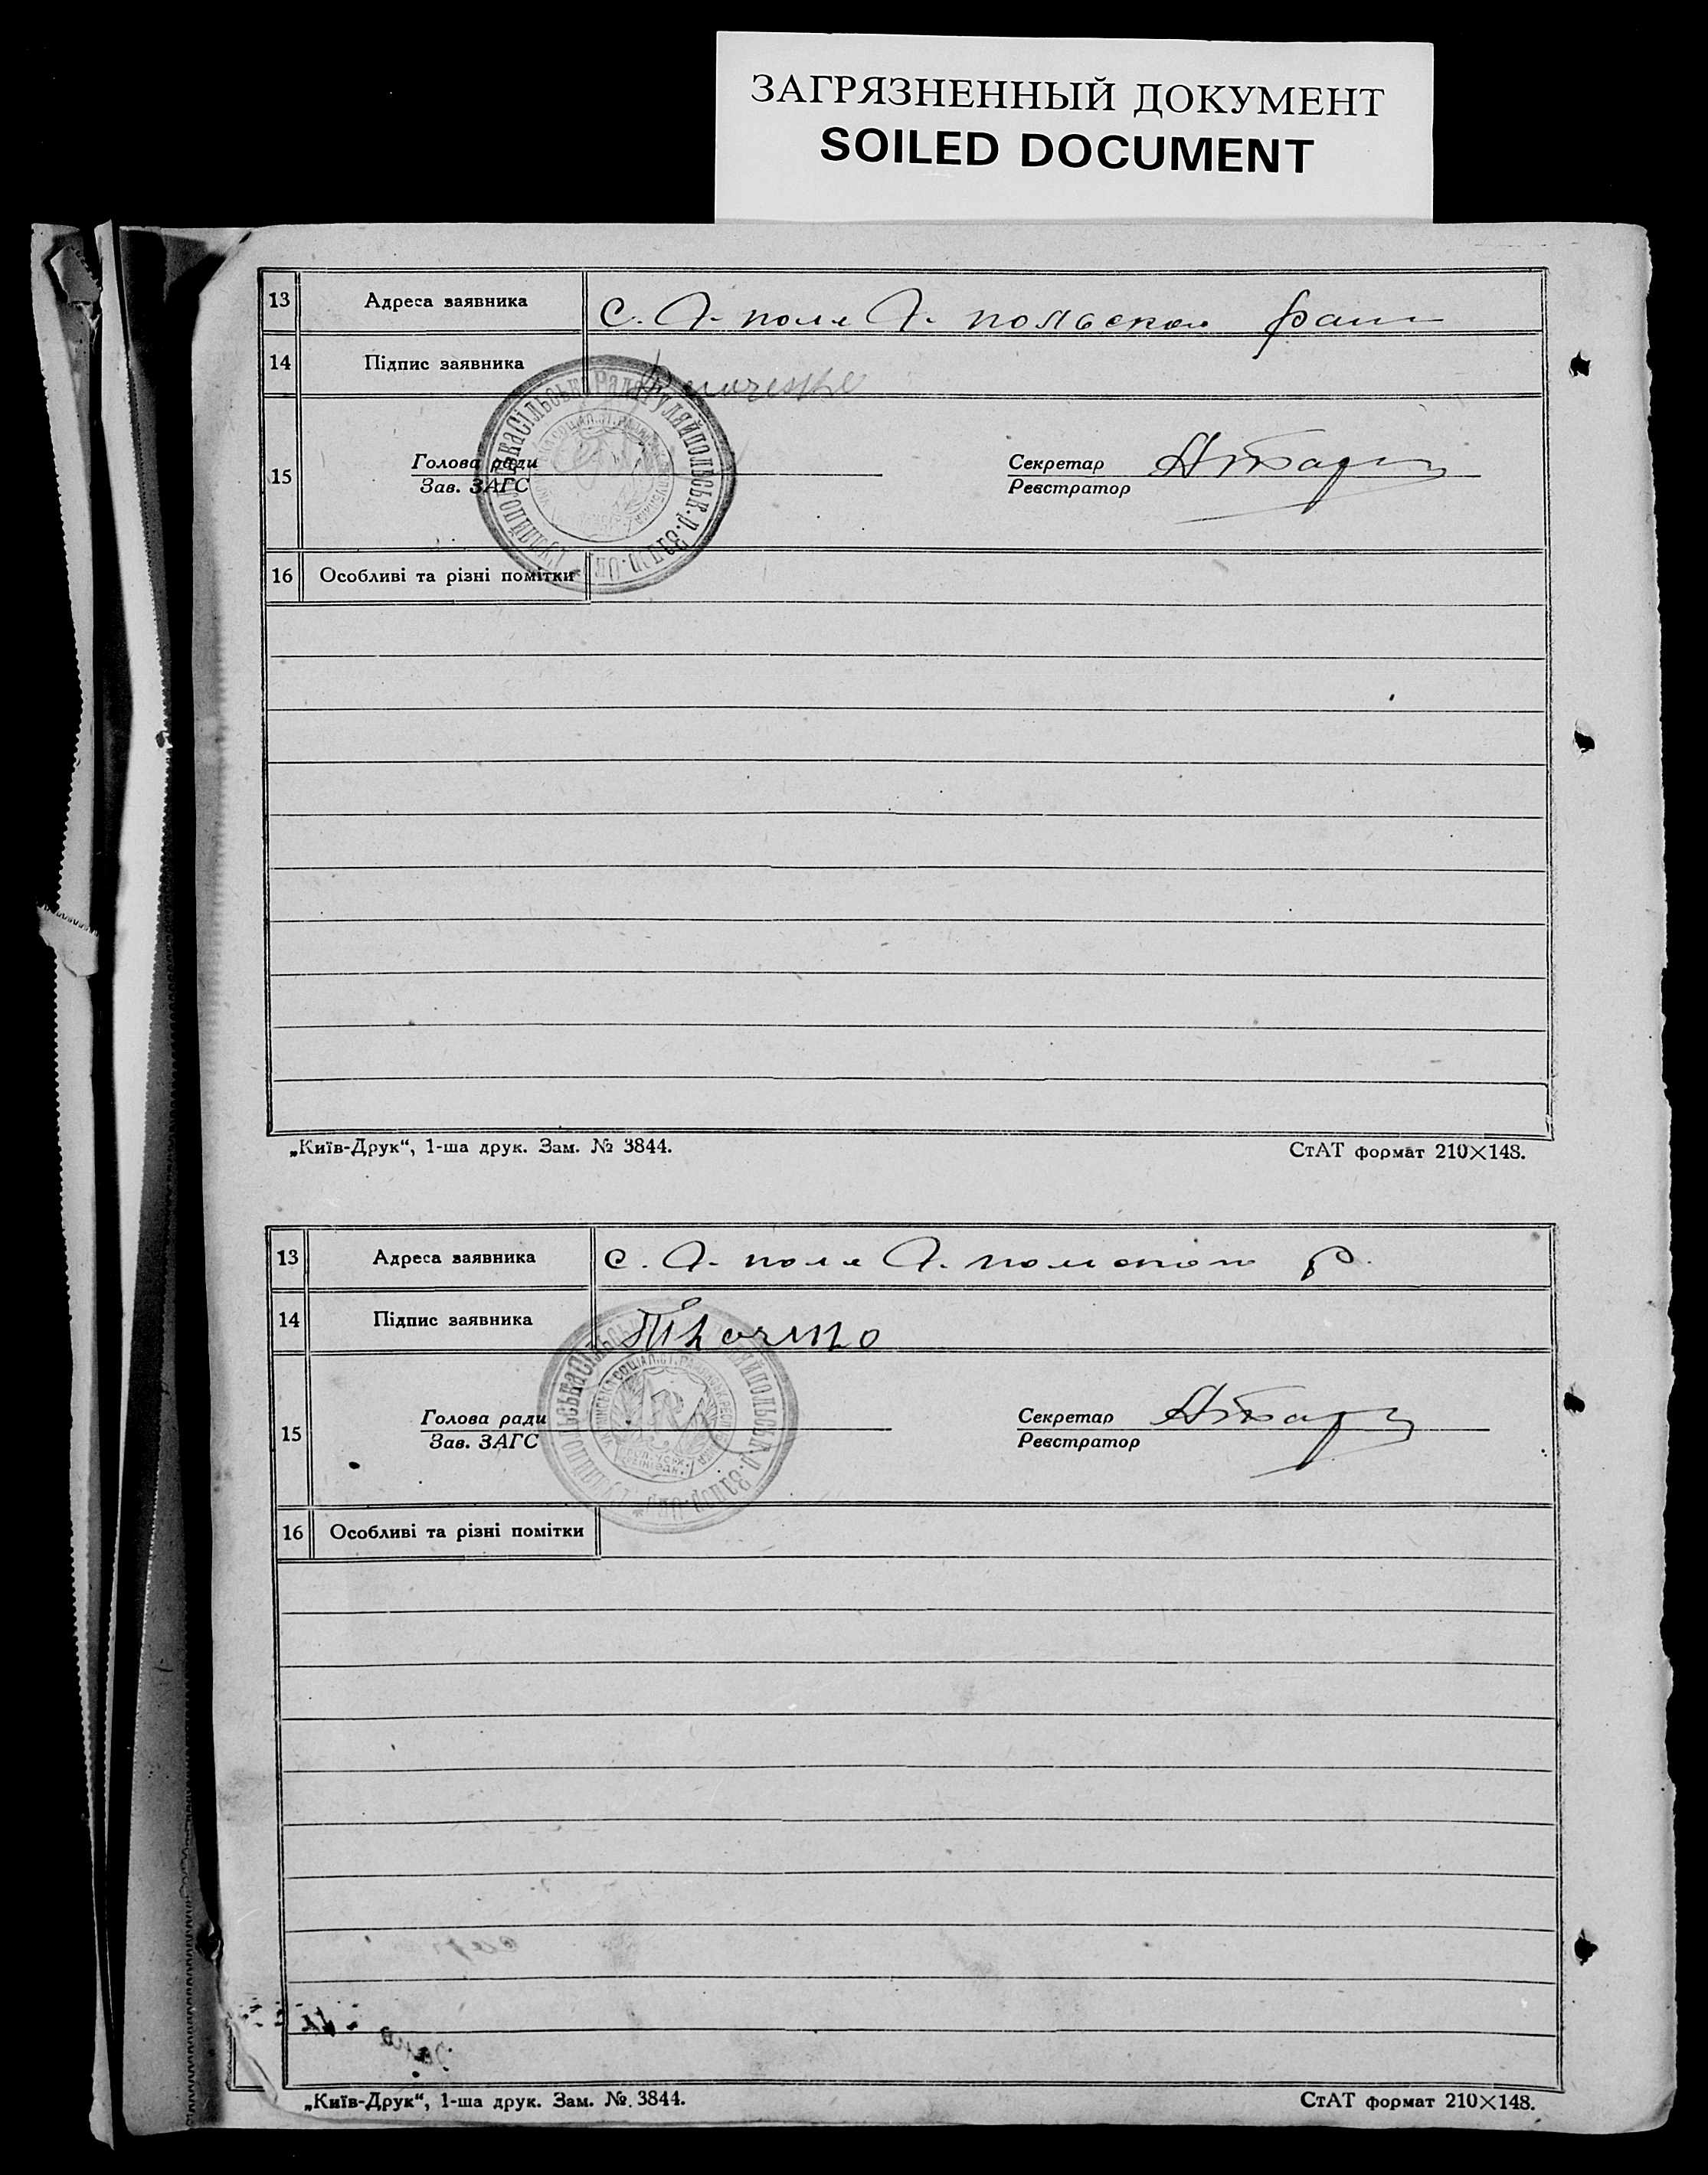 ЗАГРЯЗНЕННЫЙ ДОКУМЕНТ
SOILED DOCUMENT
13 Адреса заявника с. Г- поле Г. польском
14 Підпис заявника
15 Голова ради
Зав. ЗАГС
Секретар
Реєстратор
16 Особливі та різні помітки
„Київ-Друк“, 1-ша друк. Зам. № 3844.
СтАТ формат 210×148.
13 Адреса заявника с. Г- поле Г. р.
14 Підпис заявника
15 Голова ради
Зав. ЗАГС
Секретар
Реєстратор
16 Особливі та різні помітки
„Київ-Друк“, 1-ша друк. Зам. №. 3844.
СтАТ формат 210×148.